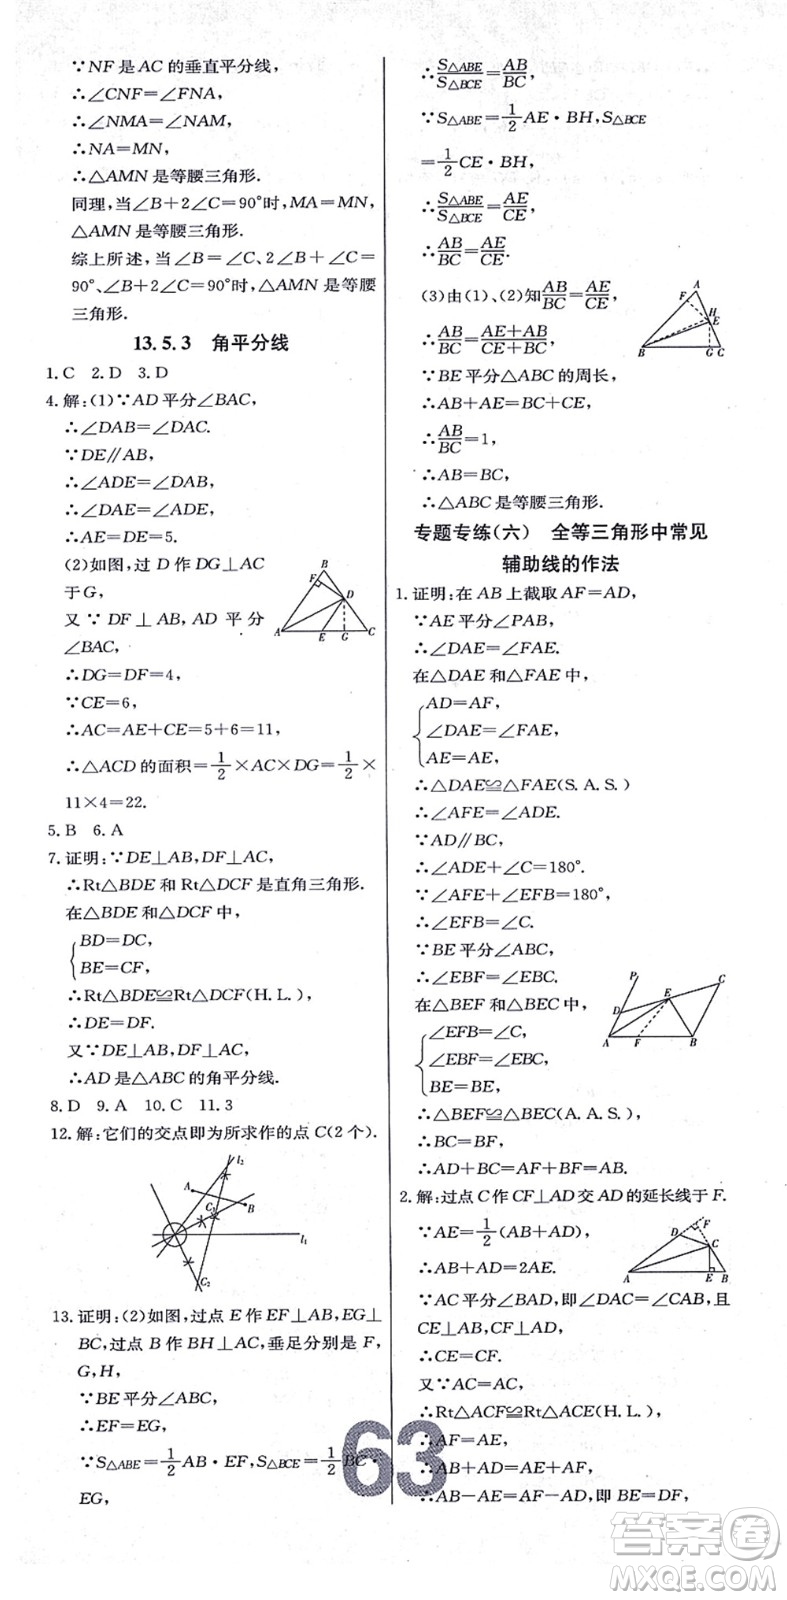 ∵NF是AC的垂直平分线,
∴∠CNF=∠FNA,
∴∠NMA=∠NAM,
∴NA=MN,
∴△AMN是等腰三角形.
同理,当∠B+2∠C=90°时,MA=MN,
△AMN是等腰三角形.
综上所述,当∠B=∠C、2∠B+∠C=
90°、∠B+2∠C=90°时,△AMN是等腰
三角形.
13.5.3 角平分线
1.C 2.D 3.D
4.解:(1)∵AD平分∠BAC,
∴∠DAB=∠DAC.
∵DE∥AB,
∴∠ADE=∠DAB,
∴∠DAE=∠ADE,
∴AE=DE=5.
(2)如图,过D作DG⊥AC
于G,
又∵DF⊥AB,AD平分
∠BAC,
∴DG=DF=4,
∵CE=6,
∴AC=AE+CE=5+6=11,
∴△ACD的面积=1/2×AC×DG=1/2×
11×4=22.
B
F
D
A
E
G
C
5.B 6.A
7.证明:∵DE⊥AB,DF⊥AC,
∴Rt△BDE和Rt△DCF是直角三角形.
在△BDE和△DCF中,
{BD=DC,
BE=CF,
∴Rt△BDE≌Rt△DCF(H.L.),
∴DE=DF.
又∵DE⊥AB,DF⊥AC,
∴AD是△ABC的角平分线.
8.D 9.A 10.C 11.3
12.解:它们的交点即为所求作的点C(2个).
l₂
A
B
C₁
l₁
C₂
13.证明:(2)如图,过点E作EF⊥AB,EG⊥
BC,过点B作BH⊥AC,垂足分别是F,
G,H,
∵BE平分∠ABC,
∴EF=EG,
∵S△ABE=1/2AB·EF,S△BCE=1/2BC·
EG,
∴S△ABE/S△BCE=AB/BC,
∵S△ABE=1/2AE·BH,S△BCE
=1/2CE·BH,
∴S△ABE/S△BCE=AE/CE,
∴AB/BC=AE/CE.
(3)由(1)、(2)知AB/BC=AE/CE,
∴AB/BC=AE+AB/BC+CE,
∵BE平分△ABC的周长,
∴AB+AE=BC+CE,
∴AB/BC=1,
∴AB=BC,
∴△ABC是等腰三角形.
A
F
H
E
B
G
C
专题专练(六) 全等三角形中常见
辅助线的作法
1.证明:在AB上截取AF=AD,
∵AE平分∠PAB,
∴∠DAE=∠FAE.
在△DAE和△FAE中,
{AD=AF,
∠DAE=∠FAE,
AE=AE,
∴△DAE≌△FAE(S.A.S.)
∴∠AFE=∠ADE.
∵AD∥BC,
∴∠ADE+∠C=180°.
∵∠AFE+∠EFB=180°,
∴∠EFB=∠C.
∵BE平分∠ABC,
∴∠EBF=∠EBC.
在△BEF和△BEC中,
{∠EFB=∠C,
∠EBF=∠EBC,
BE=BE,
∴△BEF≌△BEC(A.A.S.),
∴BC=BF,
∴AD+BC=AF+BF=AB.
P
C
E
D
A
F
B
2.解:过点C作CF⊥AD交AD的延长线于F.
∵AE=1/2(AB+AD),
∴AB+AD=2AE.
∵AC平分∠BAD,即∠DAC=∠CAB,且
CE⊥AB,CF⊥AD,
∴CE=CF.
又∵AC=AC,
∴Rt△ACF≌Rt△ACE(H.L.),
∴AF=AE,
∴AB+AD=AE+AF,
∴AB−AE=AF−AD,即BE=DF,
F
D
C
A
E
B
63
答案圈
MXQE.COM